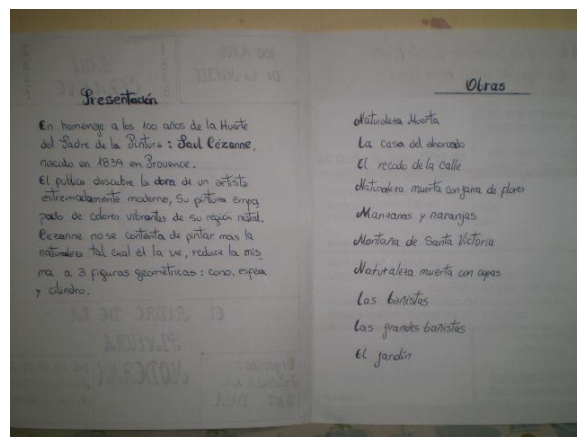 Presentación
En homenage a los 100 años de la Muerte
del Padre de la Pintura : Paul Cézanne,
nacido en 1839 en Provence.
El publico descubre la obra de un artista
extremadamente moderno, Su pintura empa
pado de colores vibrantes de su region natal.
Cezanne no se contenta de pintar mas la
naturaleza tal cual él la ve, reduce la mis
ma a 3 figuras geométricas : cono, espera
y cilindro.
Obras
Naturaleza Muerta
La casa del ahorcado
El recodo de la calle
Naturaleza muerta con jarra de flores
Manzanas y naranjas
Montaña de Santa Victoria
Naturaleza muerta con cupas
Las bañistas
Las grandes bañistas
El jardín